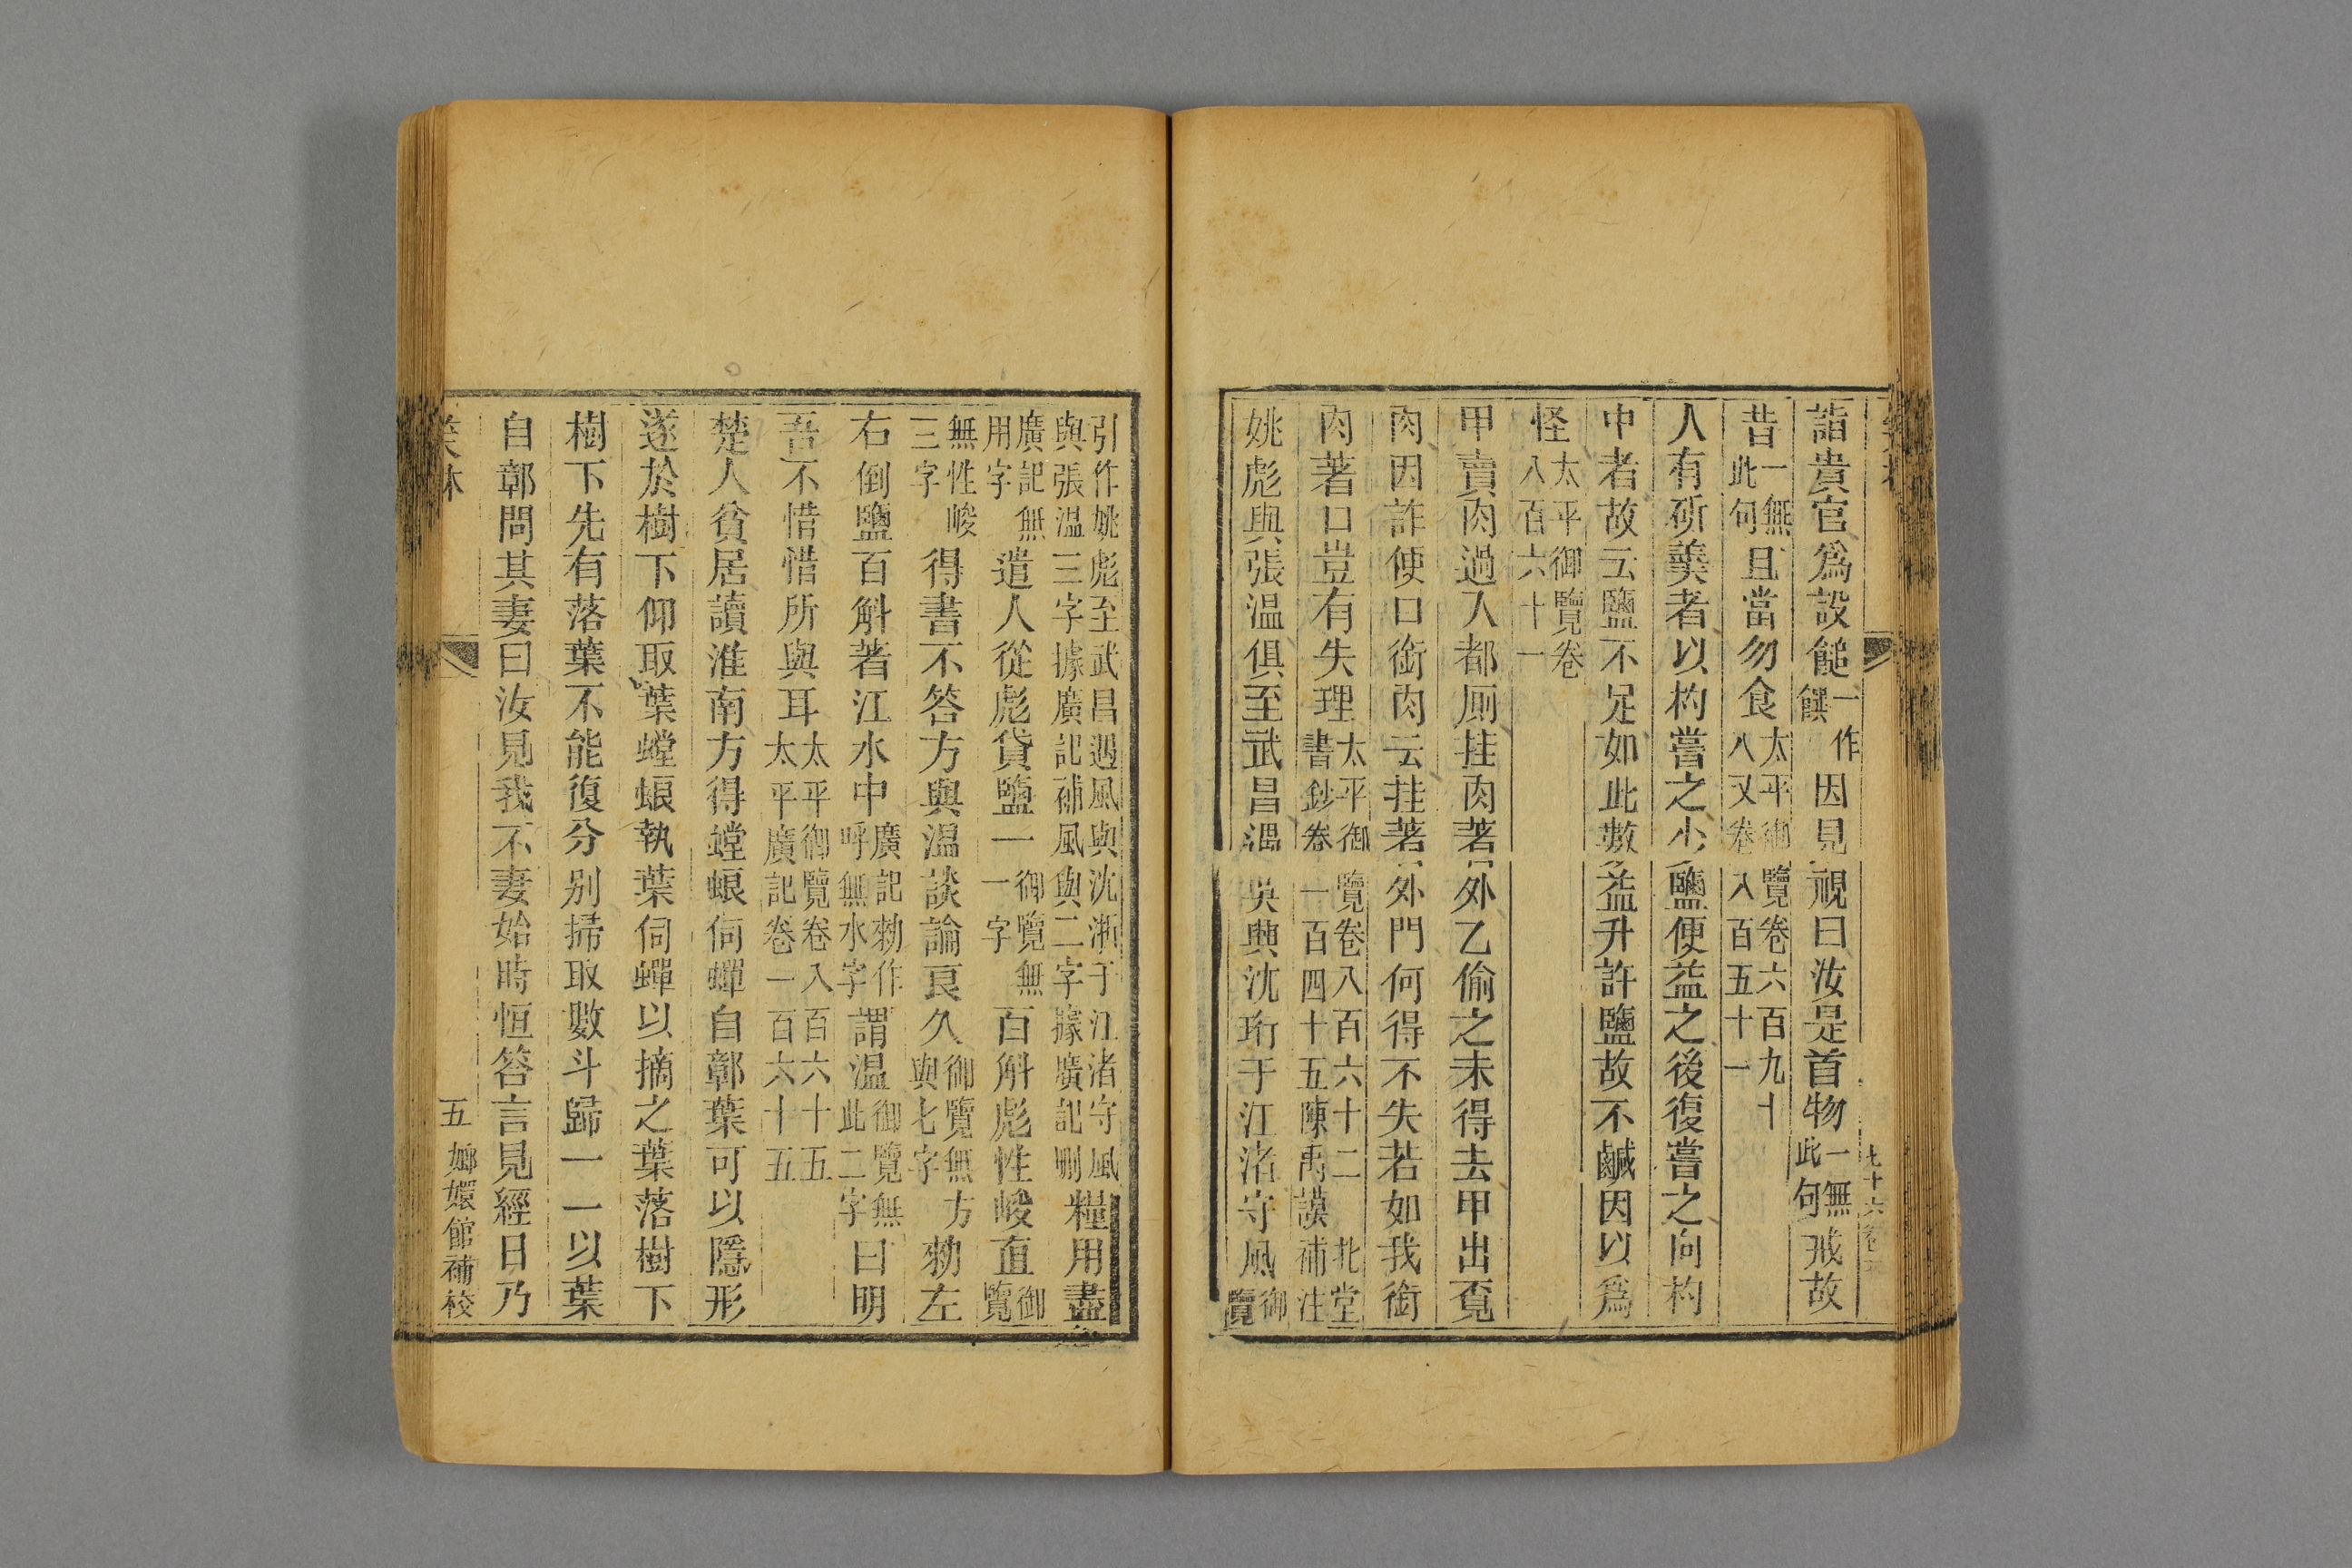 詣貴官爲設餽一作饌因見視曰汝是首物一無此句戒故
昔一無此句且當勿食太平御覽卷六百九十八又卷八百五十一
人有斫羹者以杓嘗之少鹽便益之後復嘗之向杓
中者故云鹽不足如此數益升許鹽故不鹹因以爲
怪太平御覽卷八百六十一
甲賣肉過入都厠挂肉著外乙偷之未得去甲出覓
肉因詐便口銜肉云挂著外門何得不失若如我銜
肉著口豈有失理太平御覽卷八百六十二北堂書鈔卷一百四十五陳禹謨補注
姚彪與張温俱至武昌遇吳興沈珩于江渚守風御覽
引作姚彪至武昌遇風與沈浙于江渚守風與張温三字據廣記補風與二字據廣記刪糧用盡
廣記無用字遣人從彪貸鹽一御覽無一字百斛彪性峻直御覽
無性峻三字得書不答方與温談論良久御覽無方與七字勑左
右倒鹽百斛著江水中廣記勑作呼無水字謂温御覽無此二字曰明
吾不惜惜所與耳太平御覽卷八百六十五太平廣記卷一百六十五
楚人貧居讀淮南方得螳蜋伺蟬自鄣葉可以隱形
遂於樹下仰取葉螳蜋執葉伺蟬以摘之葉落樹下
樹下先有落葉不能復分別掃取數斗歸一一以葉
自鄣問其妻曰汝見我不妻始時恒答言見經日乃
五 嫏嬛館補校